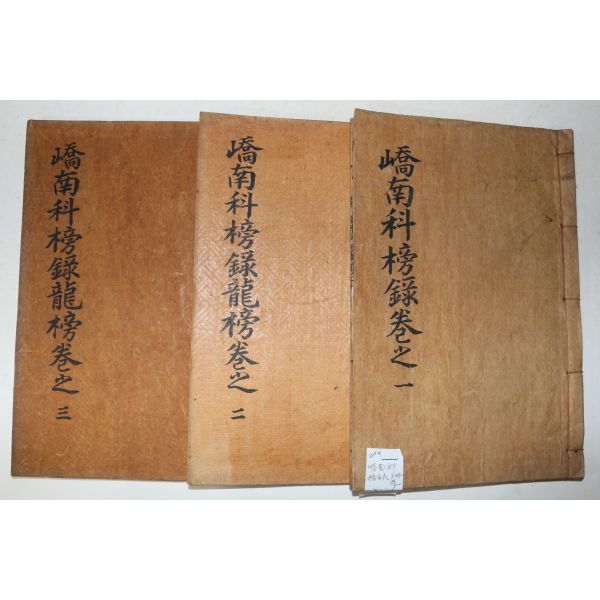 嶠南科榜錄卷之一
嶠南科榜錄龍榜卷之二
嶠南科榜錄龍榜卷之三